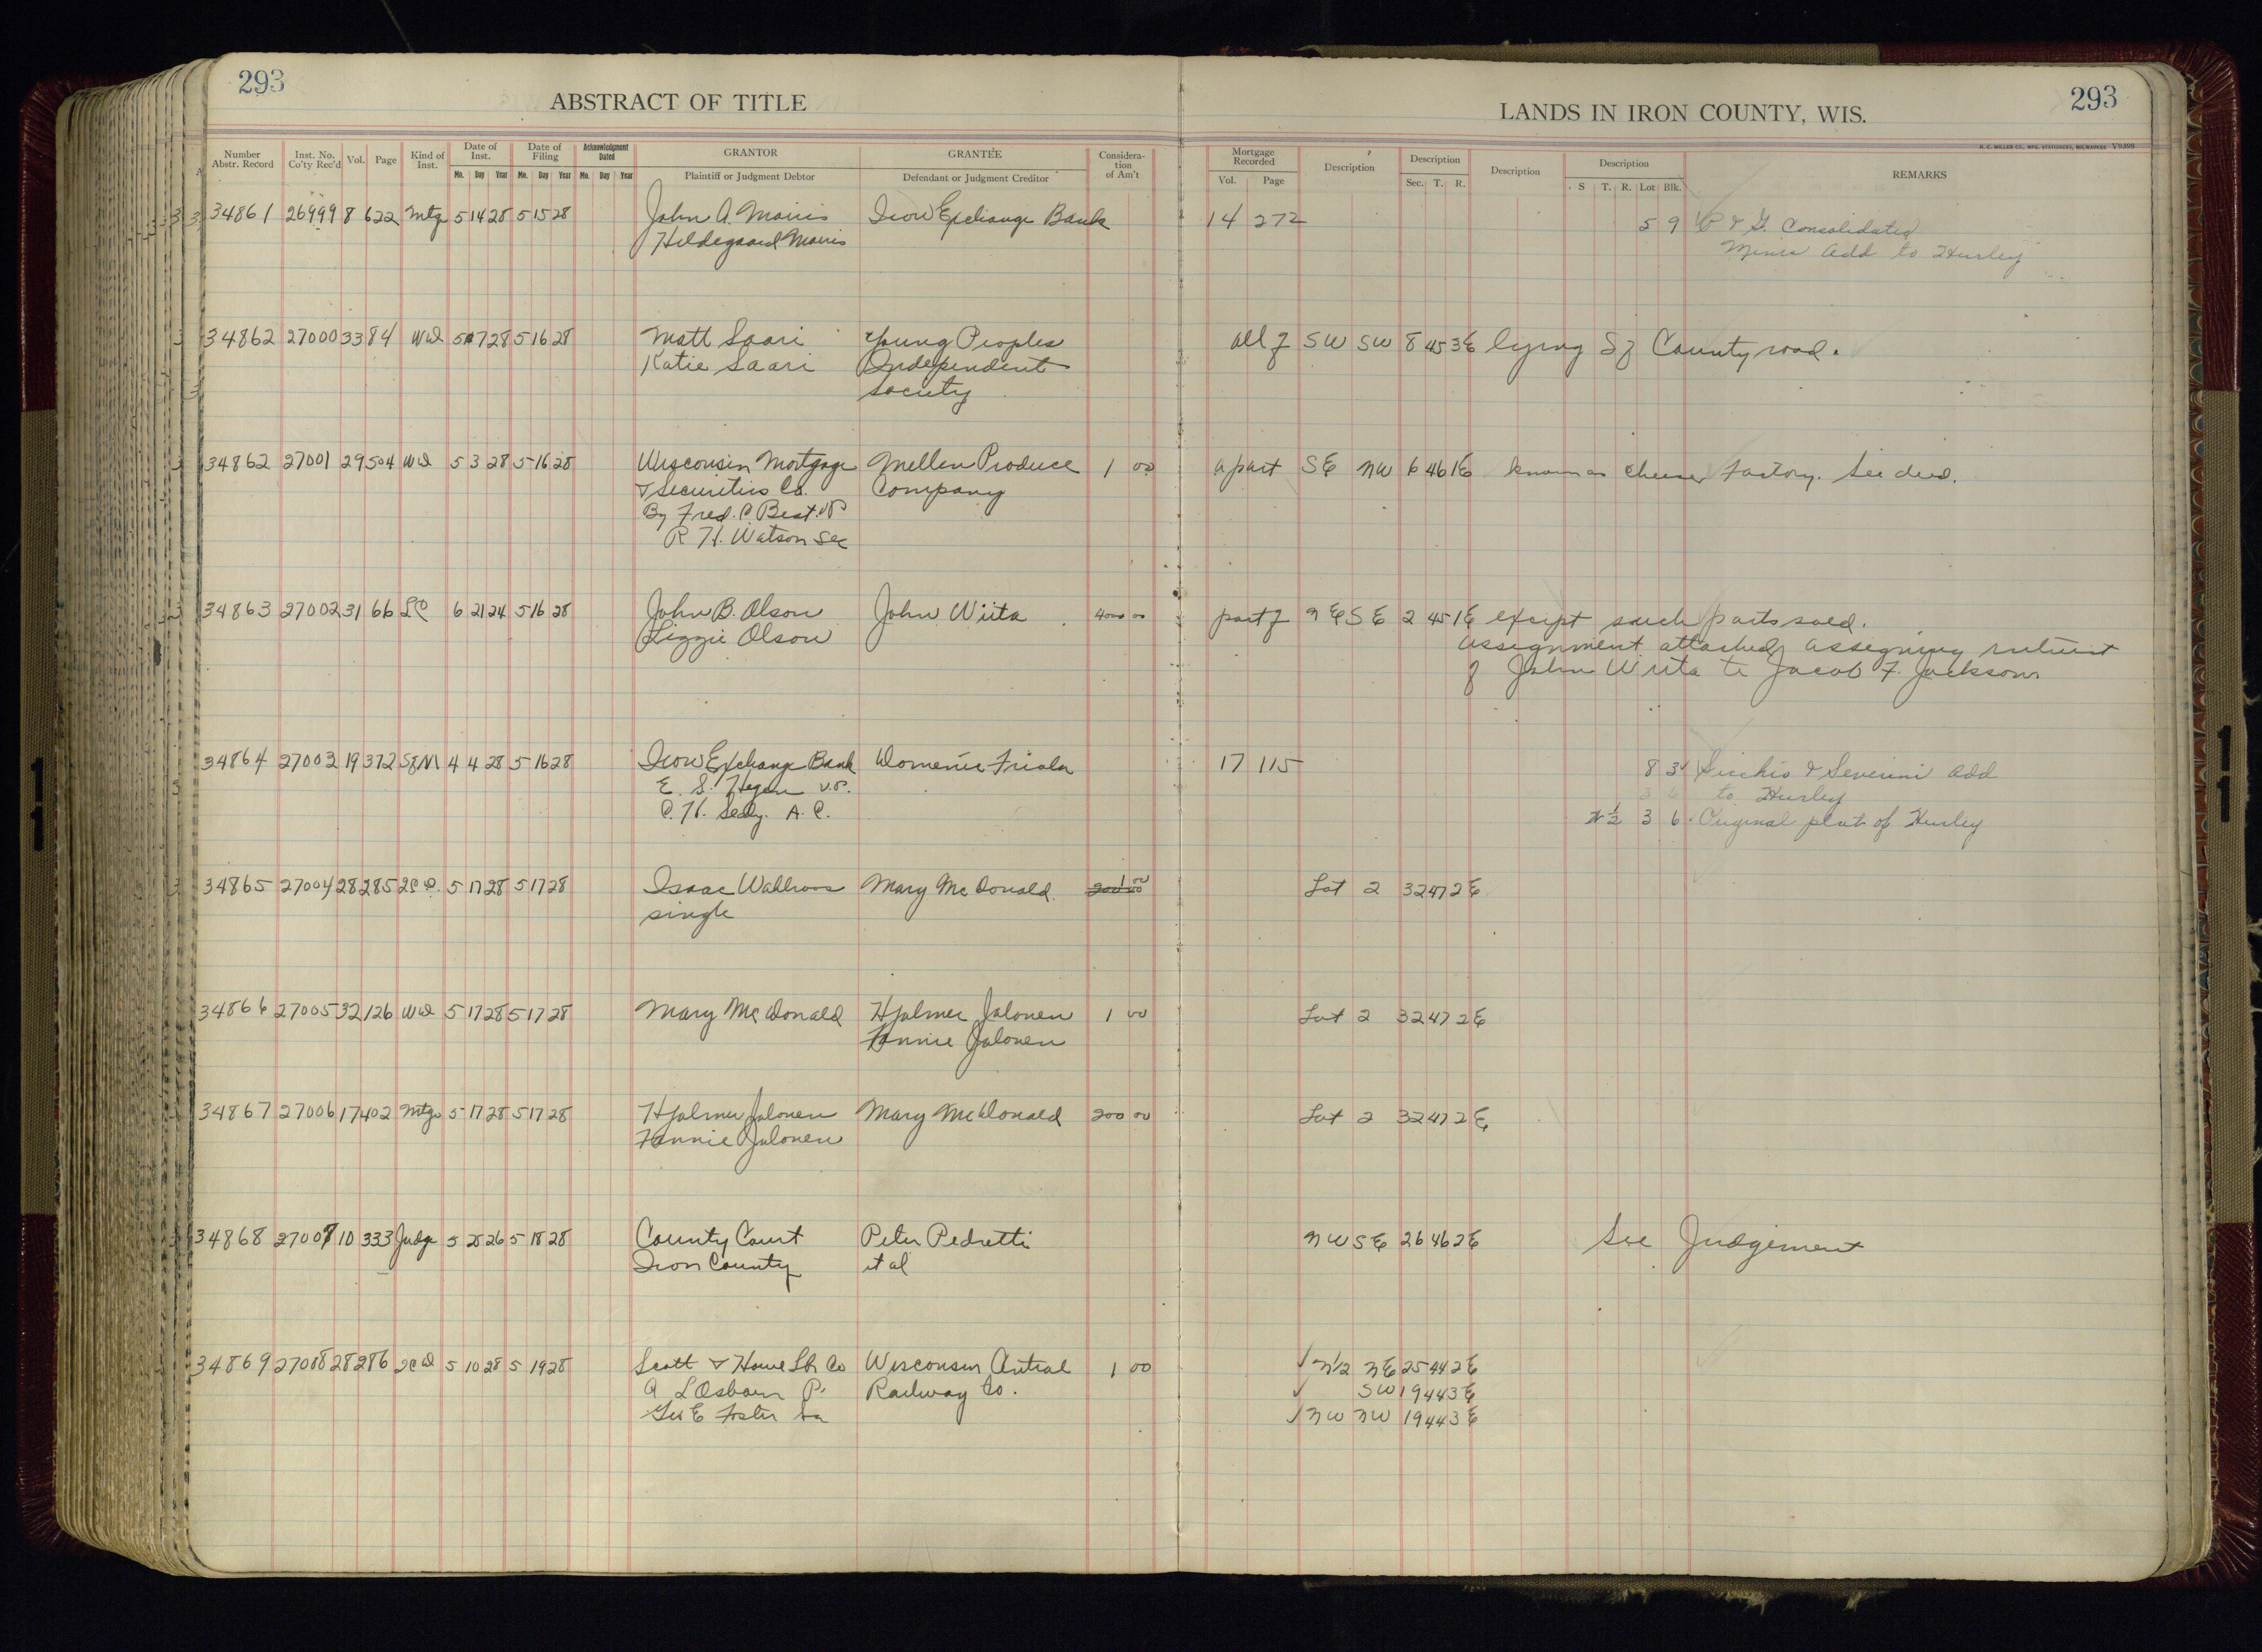 293
ABSTRACT OF TITLE
LANDS IN IRON COUNTY, WIS.
293
H. C. MILLER CO., MFG. STATIONERS, MILWAUKEE
Number Abstr. Record Inst. No. Co'ty Rec'd Vol. Page Kind of Inst. Date of Inst. Mo. Day Year Date of Filing Mo. Day Year Acknowledgment Dated Mo. Day Year GRANTOR Plaintiff or Judgment Debtor GRANTEE Defendant or Judgment Creditor Considera-tion of Am't Mortgage Recorded Vol. Page Description Description Sec. T. R. Description Description S T. R. Lot Blk. REMARKS
34861 26999 8 622 Mtg 5 14 28 5 15 28 John A. Mairis Iron Exchange Bank 14 272 5 9 P & G. Consolidated
Hildegaard Mairis Mines Add to Hurley
34862 27000 33 84 WD 5 7 28 5 16 28 Matt Saari Young Peoples all of SW SW 8 45 3E lying S of County road.
Katie Saari Independent
Society
34862 27001 29 504 WD 5 3 28 5 16 28 Wisconsin Mortgage Mellen Produce 1 00 a part SE NW 6 46 1E known as Cheese Factory. See deed.
& Securities Co. Company
By Fred. C Best. VP
R. H. Watson Sec
34863 27002 31 66 LC 6 21 24 5 16 28 John B. Olson John Wiita 4000 00 part of NE SE 2 45 1E except such parts sold.
Lizzie Olson assignment attached assigning interest
of John Wiita to Jacob F. Jackson
34864 27003 19 372 SofM 4 4 28 5 16 28 Iron Exchange Bank Domenic Friola 17 115 8 3 Sicchio & Severini Add
E. S. Hegen V.P. 3 6 to Hurley
C. H. A. C. N½ 3 6 Original plat of Hurley
34865 27004 28 285 2CD 5 17 28 5 17 28 Isaac Wahlroos Mary Mc Donald 200 00 1 00 Lot 2 32 47 2E
single
34866 27005 32 126 WD 5 17 28 5 17 28 Mary Mc Donald Hjalmer Jalonen 1 00 Lot 2 32 47 2E
Fannie Jalonen
34867 27006 17 402 Mtg 5 17 28 5 17 28 Hjalmer Jalonen Mary McDonald 200 00 Lot 2 32 47 2E
Fannie Jalonen
34868 27007 10 333 Judge 5 25 26 5 18 28 County Court Peter Pedretti NW SE 26 46 2E See Judgement
Iron County et al
34869 27008 28 286 2CD 5 10 28 5 19 28 Scott & Howe Lbr Co Wisconsin Central 1 00 ✓ N½ NE 25 44 2E
A L Osborn P. Railway Co. ✓ SW 19 44 3E
Geo E Foster ✓ NW NW 19 44 3E